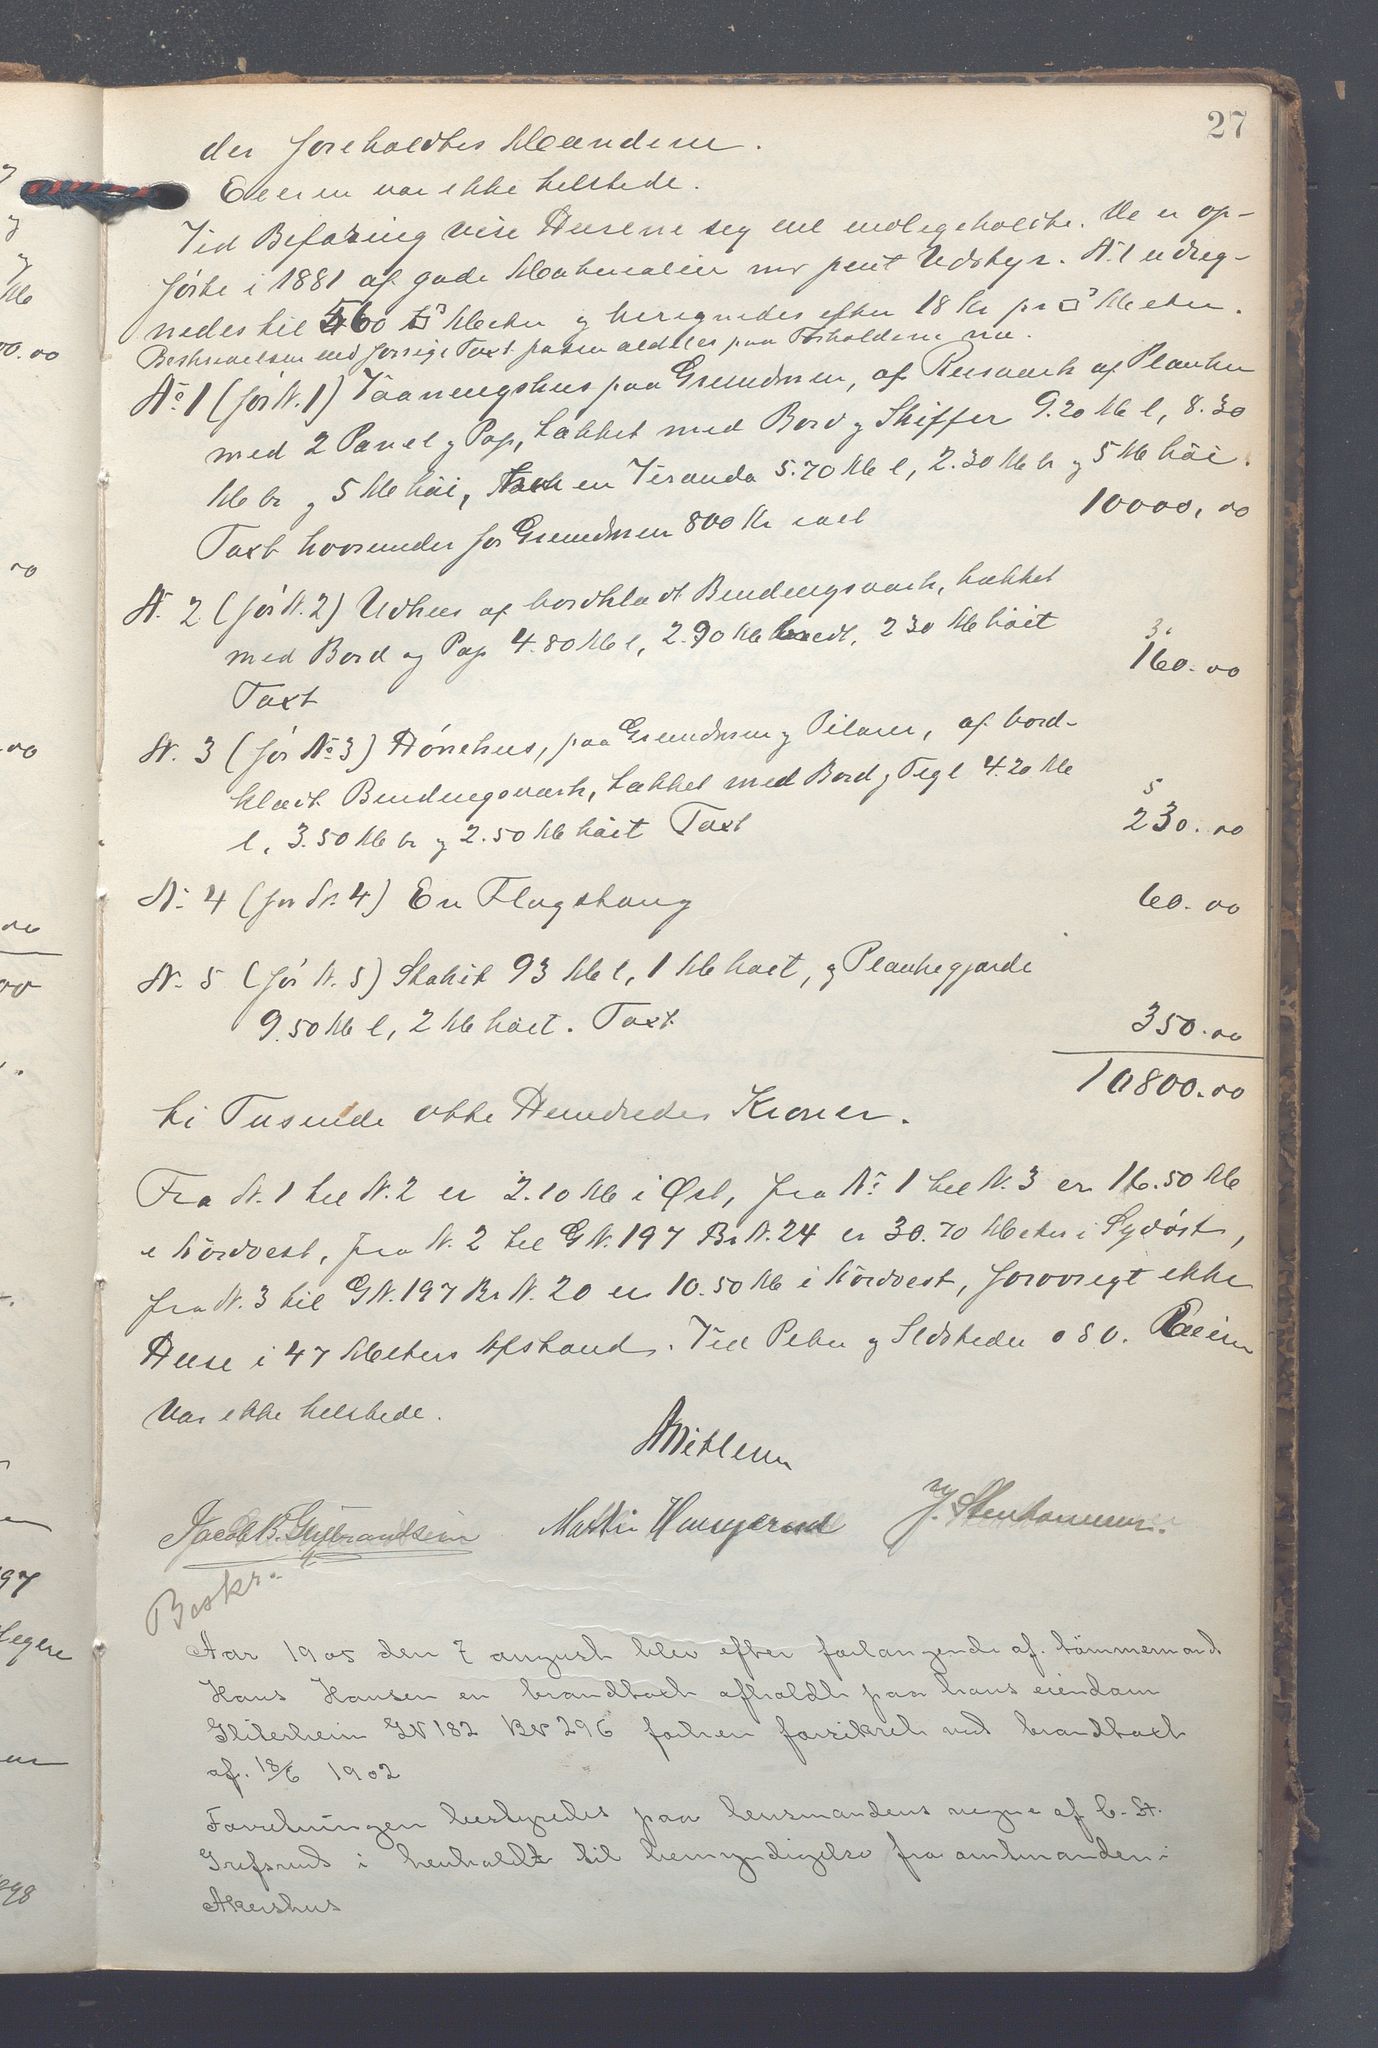 27
der foreholdtes Mændene.
Eieren var ikke tilstede.
Ved Befaring vise Husene seg vel vedligeholdte. De er op-
førte i 1881 af gode Materialier med pent Udstyr. N. 1 udreg-
nedes til 560 □ Meter og beregnedes efter 18 Kr pr □ Meter.
Beskrivelsen ved forrige Taxt passer aldeles paa Forholdene nu.
No 1 (før N. 1) Vaaningshus paa Grundmur, af Reisværk af Planker
med 2 Panel og Pap, tækket med Bord og Skiffer 9.20 M l, 8.30
M br og 5 M høi, samt en Veranda 5.70 M l, 2.30 M br og 5 M høi.
Taxt hvorunder for Grundmuren 800 Kr ialt 10000.00
N. 2 (før N. 2) Udhus af bordklædt Bindingsværk, tækket
med Bord og Pap 4.80 M l, 2.90 M bredt, 2 30 M høit
Taxt 160.00
N. 3 (før No 3) Hønehus, paa Grundmur og Pilarer, af bord-
klædt Bindingsværk, tækket med Bord og Tegl 4.20 M
l, 3.50 M br og 2.50 M høit Taxt 230.00
N. 4 (før N. 4) En Flagstang 60.00
N. 5 (før N. 5) Stakit 93 M l, 1 M høit, og Plankegjærde
9.50 M l, 2 M høit. Taxt 350.00
10800.00
ti Tusinde otte Hundrede Kroner.
Fra N. 1 til N. 2 er 2.10 M i Øst, fra No 1 til N. 3 er 16.50 M
i Nordvest, fra N. 2 til G N. 197 Br N. 24 er 30.70 Meter i Sydøst,
fra N. 3 til G N. 197 Br N. 20 er 10.50 M i Nordvest, forøvrigt ikke
Huse i 47 Meters Afstand. Ved Piber og Ildsteder o s v. Eieren
var ikke tilstede.
Jacob B. Gulbrandsen Martin Haugerud
Beskr.
Aar 1905 den 7 august blev efter forlangende af tømmermand
Hans Hansen en brandtaxt afholdt paa hans eiendom
Gliterheim GN 182 BN 296 forhen forsikret ved brandtaxt
af. 18/6 1902
Forretningen bestyredes paa lensmandens vegne af C. St.
Grefsrud i henhold til bemyndigelse fra amtmanden i
Akershus